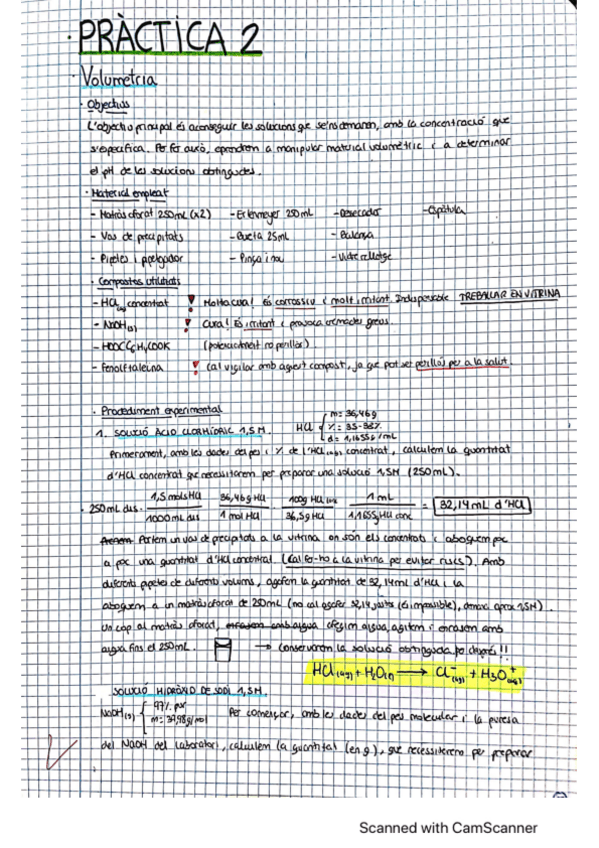 · PRÀCTICA 2
· Volumetria
· Objectius
L'objectiu principal és aconseguir les solucions que se'ns demanen, amb la concentració que
s'especifica. Per fer això, aprendrem a manipular material volumètric i a determinar
el pH de les solucions obtingudes.
· Material empleat
- Matràs aforat 250mL (x2) - Erlenmeyer 250mL - Desecador - Espàtula
- Vas de precipitats - Bureta 25mL - Balança
- Pipetes i pipetejador - Pinça i nou - Vidre rellotge
· Compostos utilitzats
- HCl(aq) concentrat ! Molta cura! És corrossiu i molt irritant. Indispensable TREBALLAR EN VITRINA
- NaOH(s) ! Cura! És irritant i provoca cremades greus.
- HOOCC6H4COOK (potencialment no perillós)
- Fenolftaleïna ! Cal vigilar amb aquest compost, ja que pot ser perillós per a la salut.
· Procediment experimental
1. SOLUCIÓ ÀCID CLORHÍDRIC 1,5M. HCl { m= 36,46g
%= 35-38%
d= 1,1655g/mL
Primerament, amb les dades del pes i % de l'HCl(aq) concentrat, calculem la quantitat
d'HCl concentrat que necessitarem per preparar una solució 1,5M (250mL).
· 250mL dis. · 1,5mols HCl / 1000mL dis · 36,46g HCl / 1 mol HCl · 100g HCl / 36,5g HCl · 1mL / 1,1655g HCl conc = 32,14mL d'HCl
Portem un vas de precipitats a la vitrina on són els concentrats i aboquem poc
a poc una quantitat d'HCl concentrat (Cal fer-ho a la vitrina per evitar riscs). Amb
diferents pipetes de diferents volums, agafem la quantitat de 32,14mL d'HCl i la
aboquem a un matràs aforat de 250mL (no cal agafar 32,14 justos (és impossible), aprox 1,5M).
Un cop al matràs aforat, enrasem amb aigua afegim aigua, agitem i enrasem amb
aigua fins el 250mL. → Conservarem la solució obtinguda
HCl(aq) + H2O(l) → Cl-(aq) + H3O+(aq)
SOLUCIÓ HIDRÒXID DE SODI 1,5M.
NaOH(s) { 97% pur
m= 39,98g/mol Per començar, amb les dades del pes molecular i la puresa
del NaOH del laboratori, calculem la quantitat (en g), que necessitarem per preparar
Scanned with CamScanner